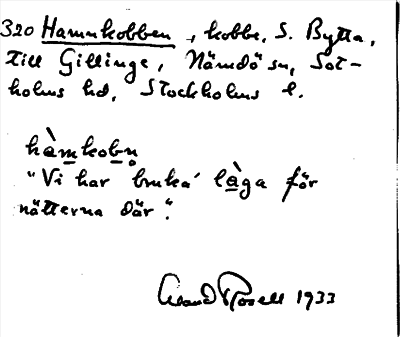 320 Hamnkobben, kobbe, S. Bytta,
till Gillinge, Nämdö sn, Sot-
holms hd, Stockholms l.
hàmkobn̥
"Vi har bruka' làga för
nätterna där".
Rosell 1933